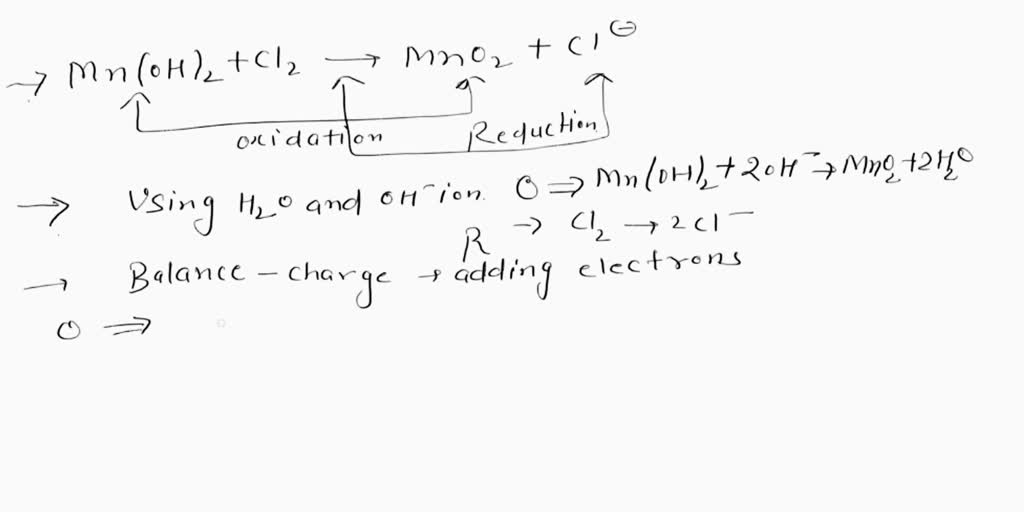 → Mn(OH)₂ + Cl₂ → MnO₂ + Cl⊖
oxidation Reduction
→ Using H₂O and OH⁻ ion. O ⇒ Mn(OH)₂ + 2OH⁻ → MnO₂ + 2H₂O
R → Cl₂ → 2Cl⁻
→ Balance - charge → adding electrons
O ⇒